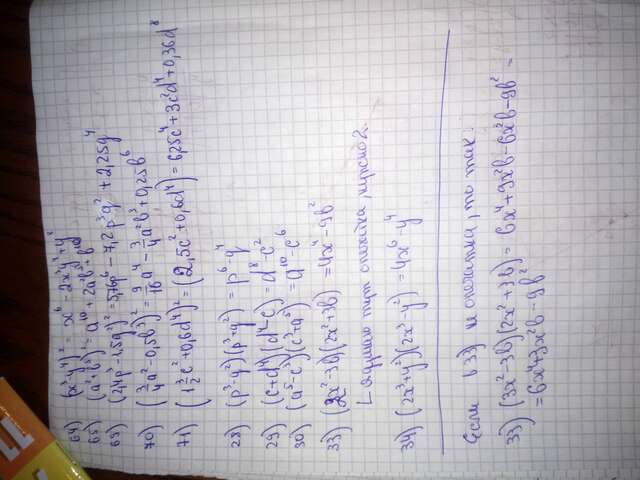 64) (x³-y⁴)² = x⁶ - 2x³y⁴ + y⁸
65) (a⁵+b⁵)² = a¹⁰ + 2a⁵b⁵ + b¹⁰
69) (2,4p³-1,5q²)² = 5,76p⁶ - 7,2p³q² + 2,25q⁴
70) (3/4a²-0,5b³)² = 9/16a⁴ - 3/4a²b³ + 0,25b⁶
71) (1 3/2c²+0,6d⁴)² = (2,5c²+0,6d⁴) = 6,25c⁴+3c²d⁴+0,36d⁸
28) (p³-q²)(p³+q²) = p⁶-q⁴
29) (c+d⁴)(d⁴-c) = d⁸-c²
30) (a⁵-c³)(c³+a⁵) = a¹⁰-c⁶
33) (2x²-3b)(2x²+3b) = 4x⁴-9b²
думаю тут опечатка, нужно 2
34) (2x³+y²)(2x³-y²) = 4x⁶-y⁴
Если в 33) не опечатка, то так:
33) (3x²-3b)(2x²+3b) = 6x⁴+9x²b-6x²b-9b² =
= 6x⁴+3x²b-9b²